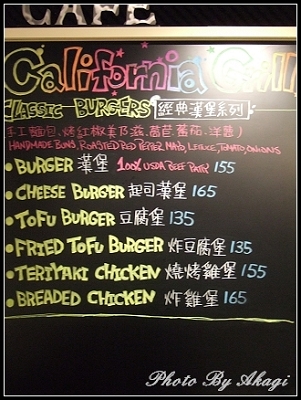 CAFE
California Grill
CLASSIC BURGERS 經典漢堡系列
手工麵包.烤紅椒美乃滋.蘿蔓.蕃茄.洋蔥
HANDMADE BUNS, ROASTED RED PEPPER MAYO, LETTUCE, TOMATO, ONIONS
• BURGER 漢堡 100% USDA BEEF PATTY 155
• CHEESE BURGER 起司漢堡 165
• TOFU BURGER 豆腐堡 135
• FRIED TOFU BURGER 炸豆腐堡 135
• TERIYAKI CHICKEN 燒烤雞堡 155
• BREADED CHICKEN 炸雞堡 165
Photo By Akagi